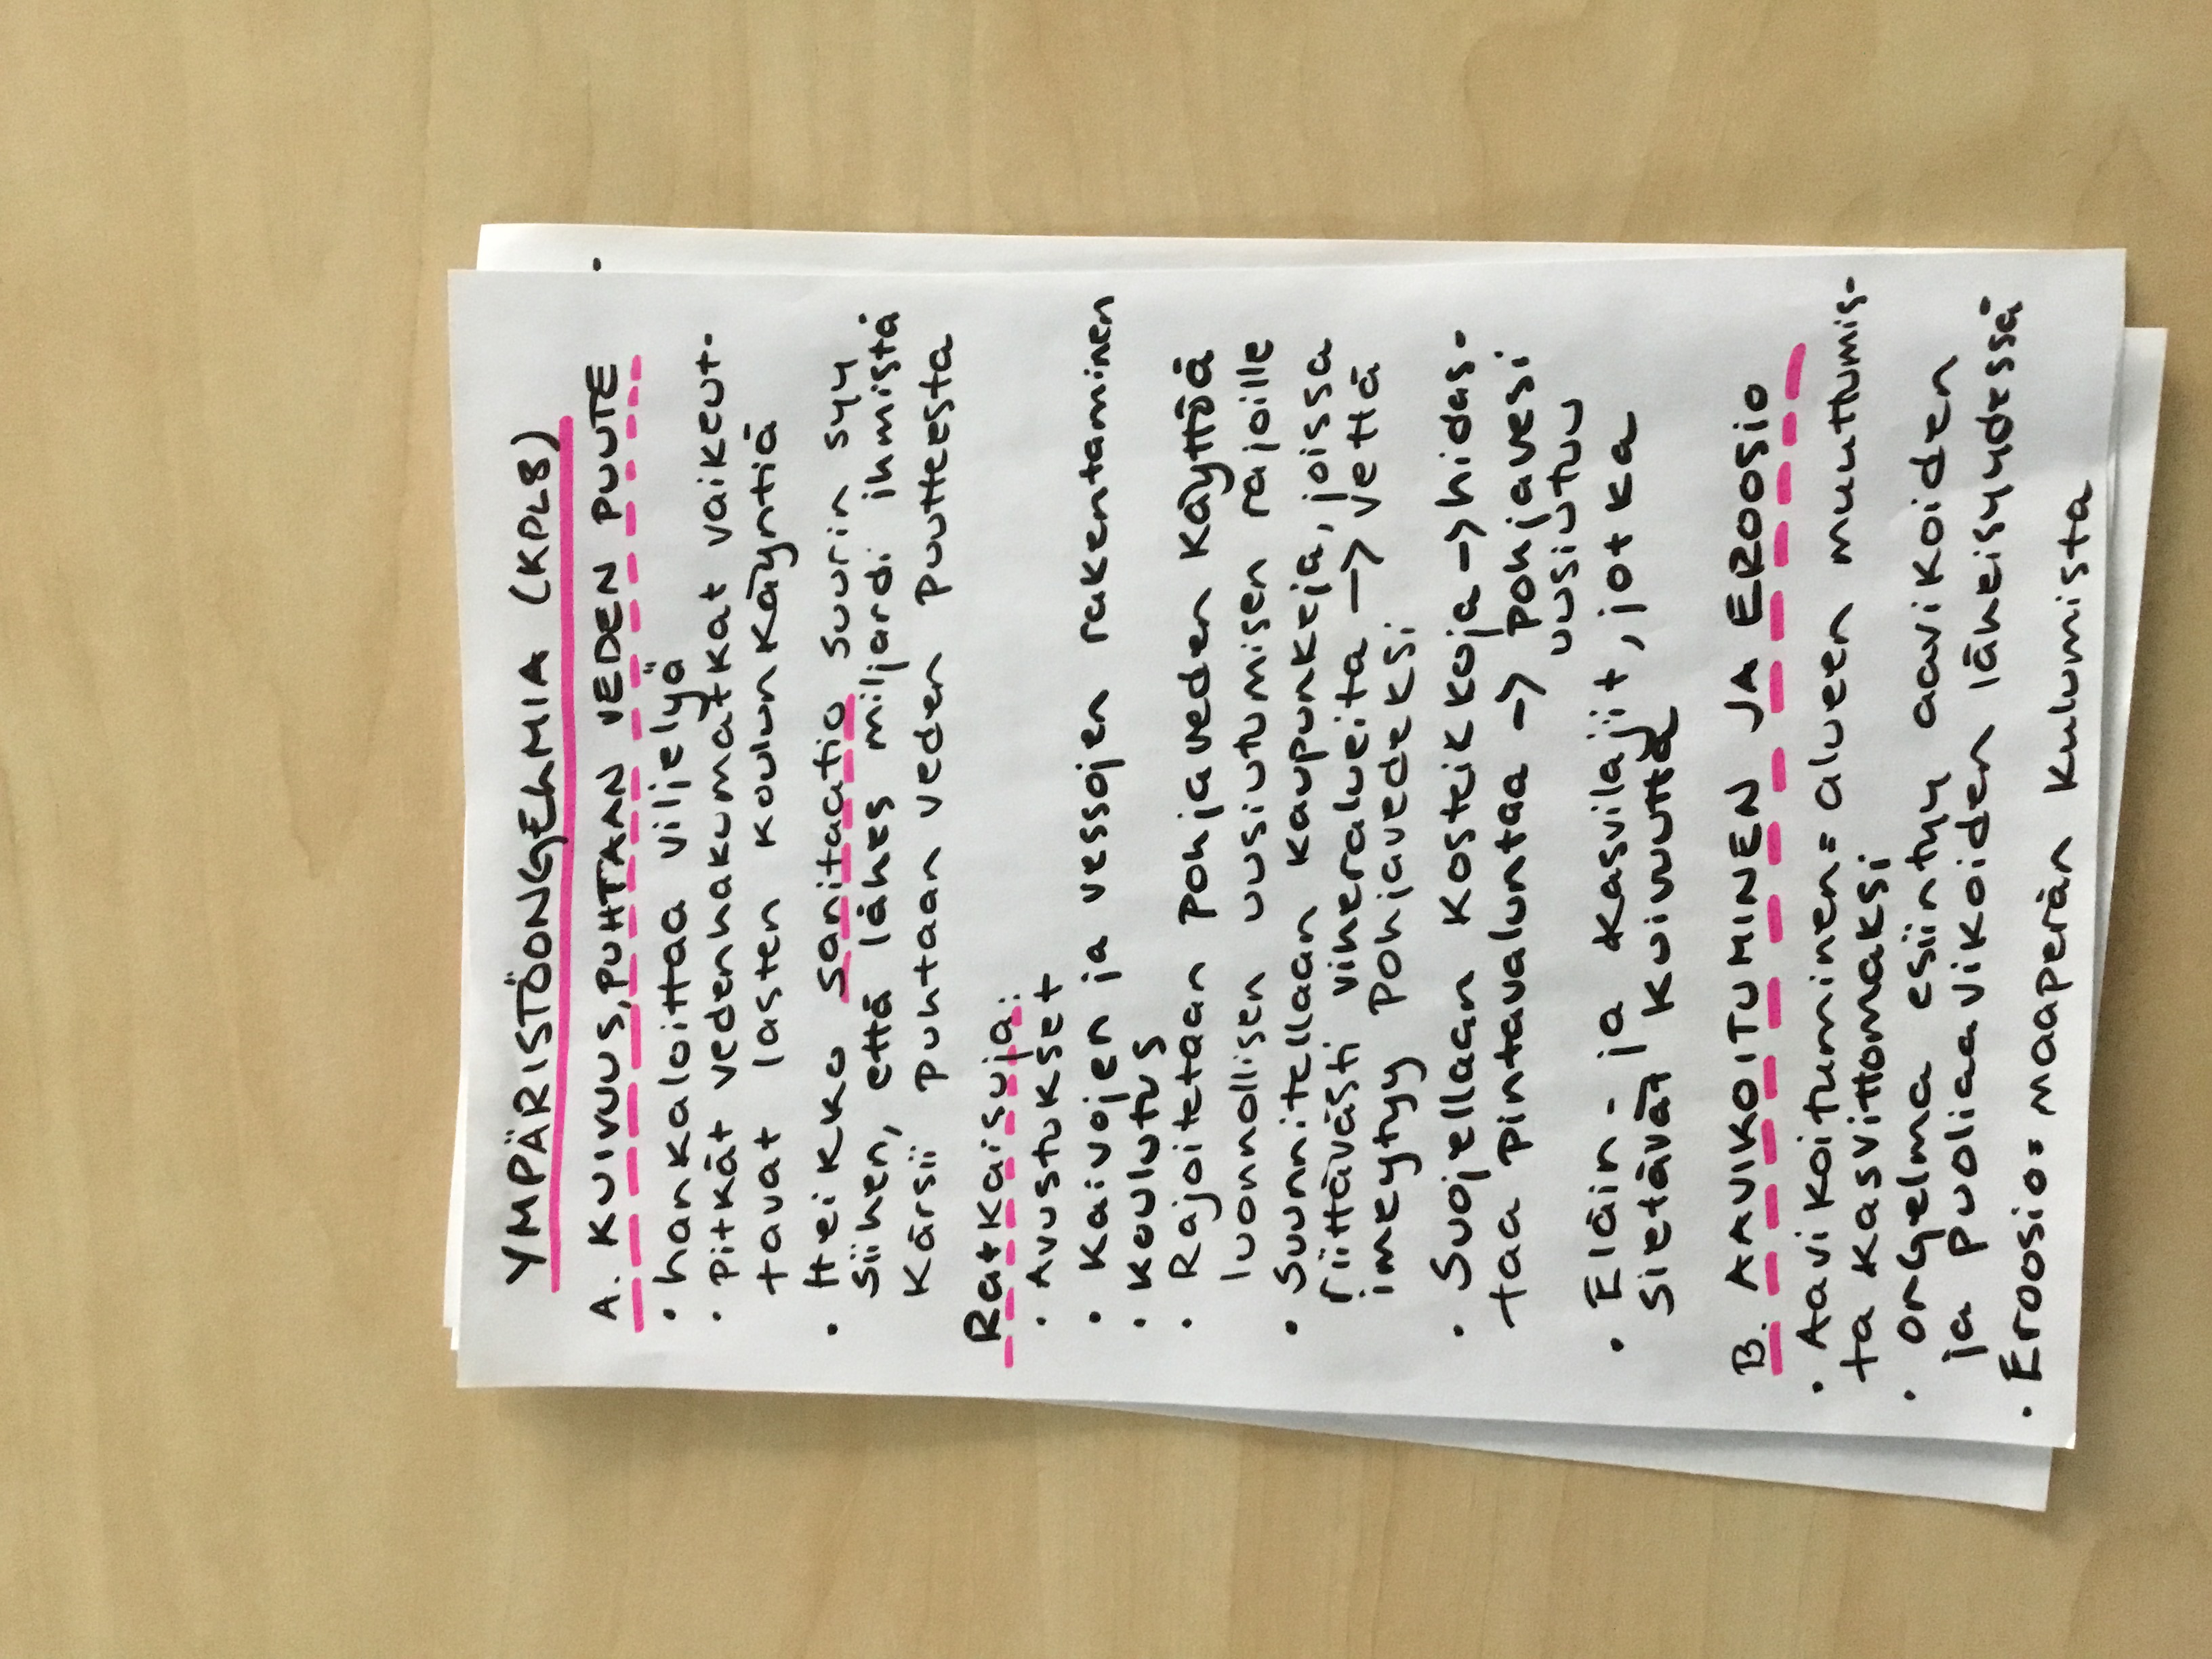 YMPÄRISTÖONGELMIA (KPL8)
A. KUIVUUS, PUHTAAN VEDEN PUUTE
• hankaloittaa viljelyä
• pitkät vedenhakumatkat vaikeut-
tavat lasten koulunkäyntiä
• Heikko sanitaatio suurin syy
siihen, että lähes miljardi ihmistä
kärsii puhtaan veden puutteesta
Ratkaisuja:
• Avustukset
• Kaivojen ja vessojen rakentaminen
• Koulutus
• Rajoitetaan pohjaveden käyttöä
luonnollisen uusiutumisen rajoille
• Suunnitellaan kaupunkeja, joissa
riittävästi viheralueita -> vettä
imeytyy pohjavedeksi
• Suojellaan kosteikkoja -> hidas-
taa pintavaluntaa -> pohjavesi
uusiutuu
• Eläin- ja kasvilajit, jotka
sietävät kuivuutta
B. AAVIKOITUMINEN JA EROOSIO
• Aavikoituminen= alueen muuttumis-
ta kasvittomaksi
• ongelma esiintyy aavikoiden
ja puoliaavikoiden läheisyydessä
• Eroosio= maaperän kulumista